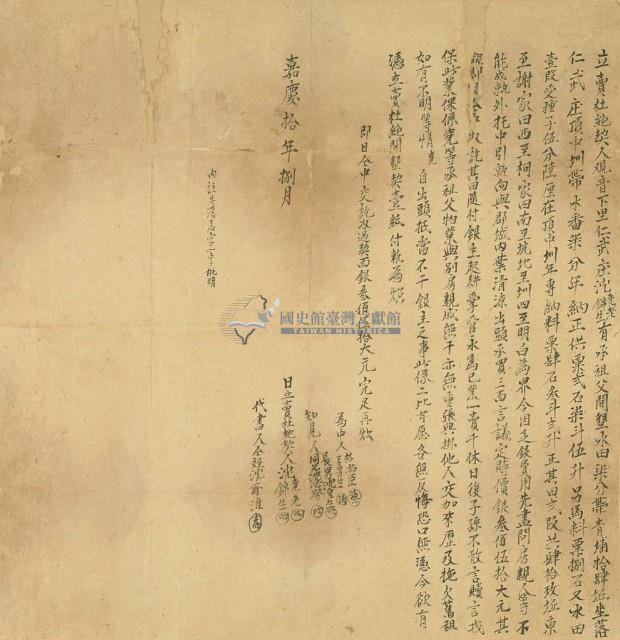 立賣杜絕契人觀音下里仁武庄沈堯老錦生有承祖父開墾水田柒分帶青埔拾肆坵坐落
仁武庄頂中圳帶水番柒分年納正供粟弍石柒斗伍升另馬料粟捌石又水田
壹段受種子伍分陸厘在頂中圳年專納料粟肆石叁斗弍升正其田弍段共肆拾玫坵東
至謝家田西至柯家田南至坑北至圳四至明白為界今因乏銀費用先盡問房親人等不
能成就外托中引就向與郡城內業清源出頭承買三面言議定時價銀叁佰伍拾大元其
銀即日仝中收訖其田隨付銀主起耕掌管永為己業一賣千休日後子孫不敢言贖言找
保此業係堯等承祖父物業與別房親戚無干亦無重張典掛他人交加來歷及拖欠舊租
如有不明等情堯自出頭抵當不干銀主之事此係二比甘愿各無反悔恐口無憑今欲有
憑立賣杜絕開墾契壹紙付執為炤
即日仝中交訖收過契面銀叁佰伍拾大元完足再炤
嘉慶拾年捌月
日立賣杜絕契人沈堯老錦生
為中人
知見人
代書人
批明
國史館臺灣文獻館
TAIWAN HISTORICA